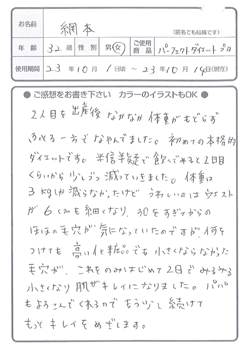 お名前 網本 (匿名でも結構です)
年齢 32歳 性別 男・女 ご使用商品 パーフェクトダイエットプロ
使用期間 23年10月1日頃〜23年10月14日(現在)
●ご感想をお書き下さい カラーのイラストもOK●
2人目を出産後なかなか体重がもどらず
ふくろ一方でなやんでました。初めての本格的
ダイエットです。半信半疑で飲んでみると2日目
くらいから少しづつ減っていきました。体重は
3kgしか減らなかったけど うれしいのはウエスト
が6cmも細くなり、30をすぎてからの
ほほの毛穴が気になっていたのですが何を
つけても高い化粧品でも小さくならなかった
毛穴が、これをのみはじめて2日でみるみる
小さくなり肌がキレイになりました。パパ
もよろこんでくれるのでもう少し続けて
もっとキレイをめざします。